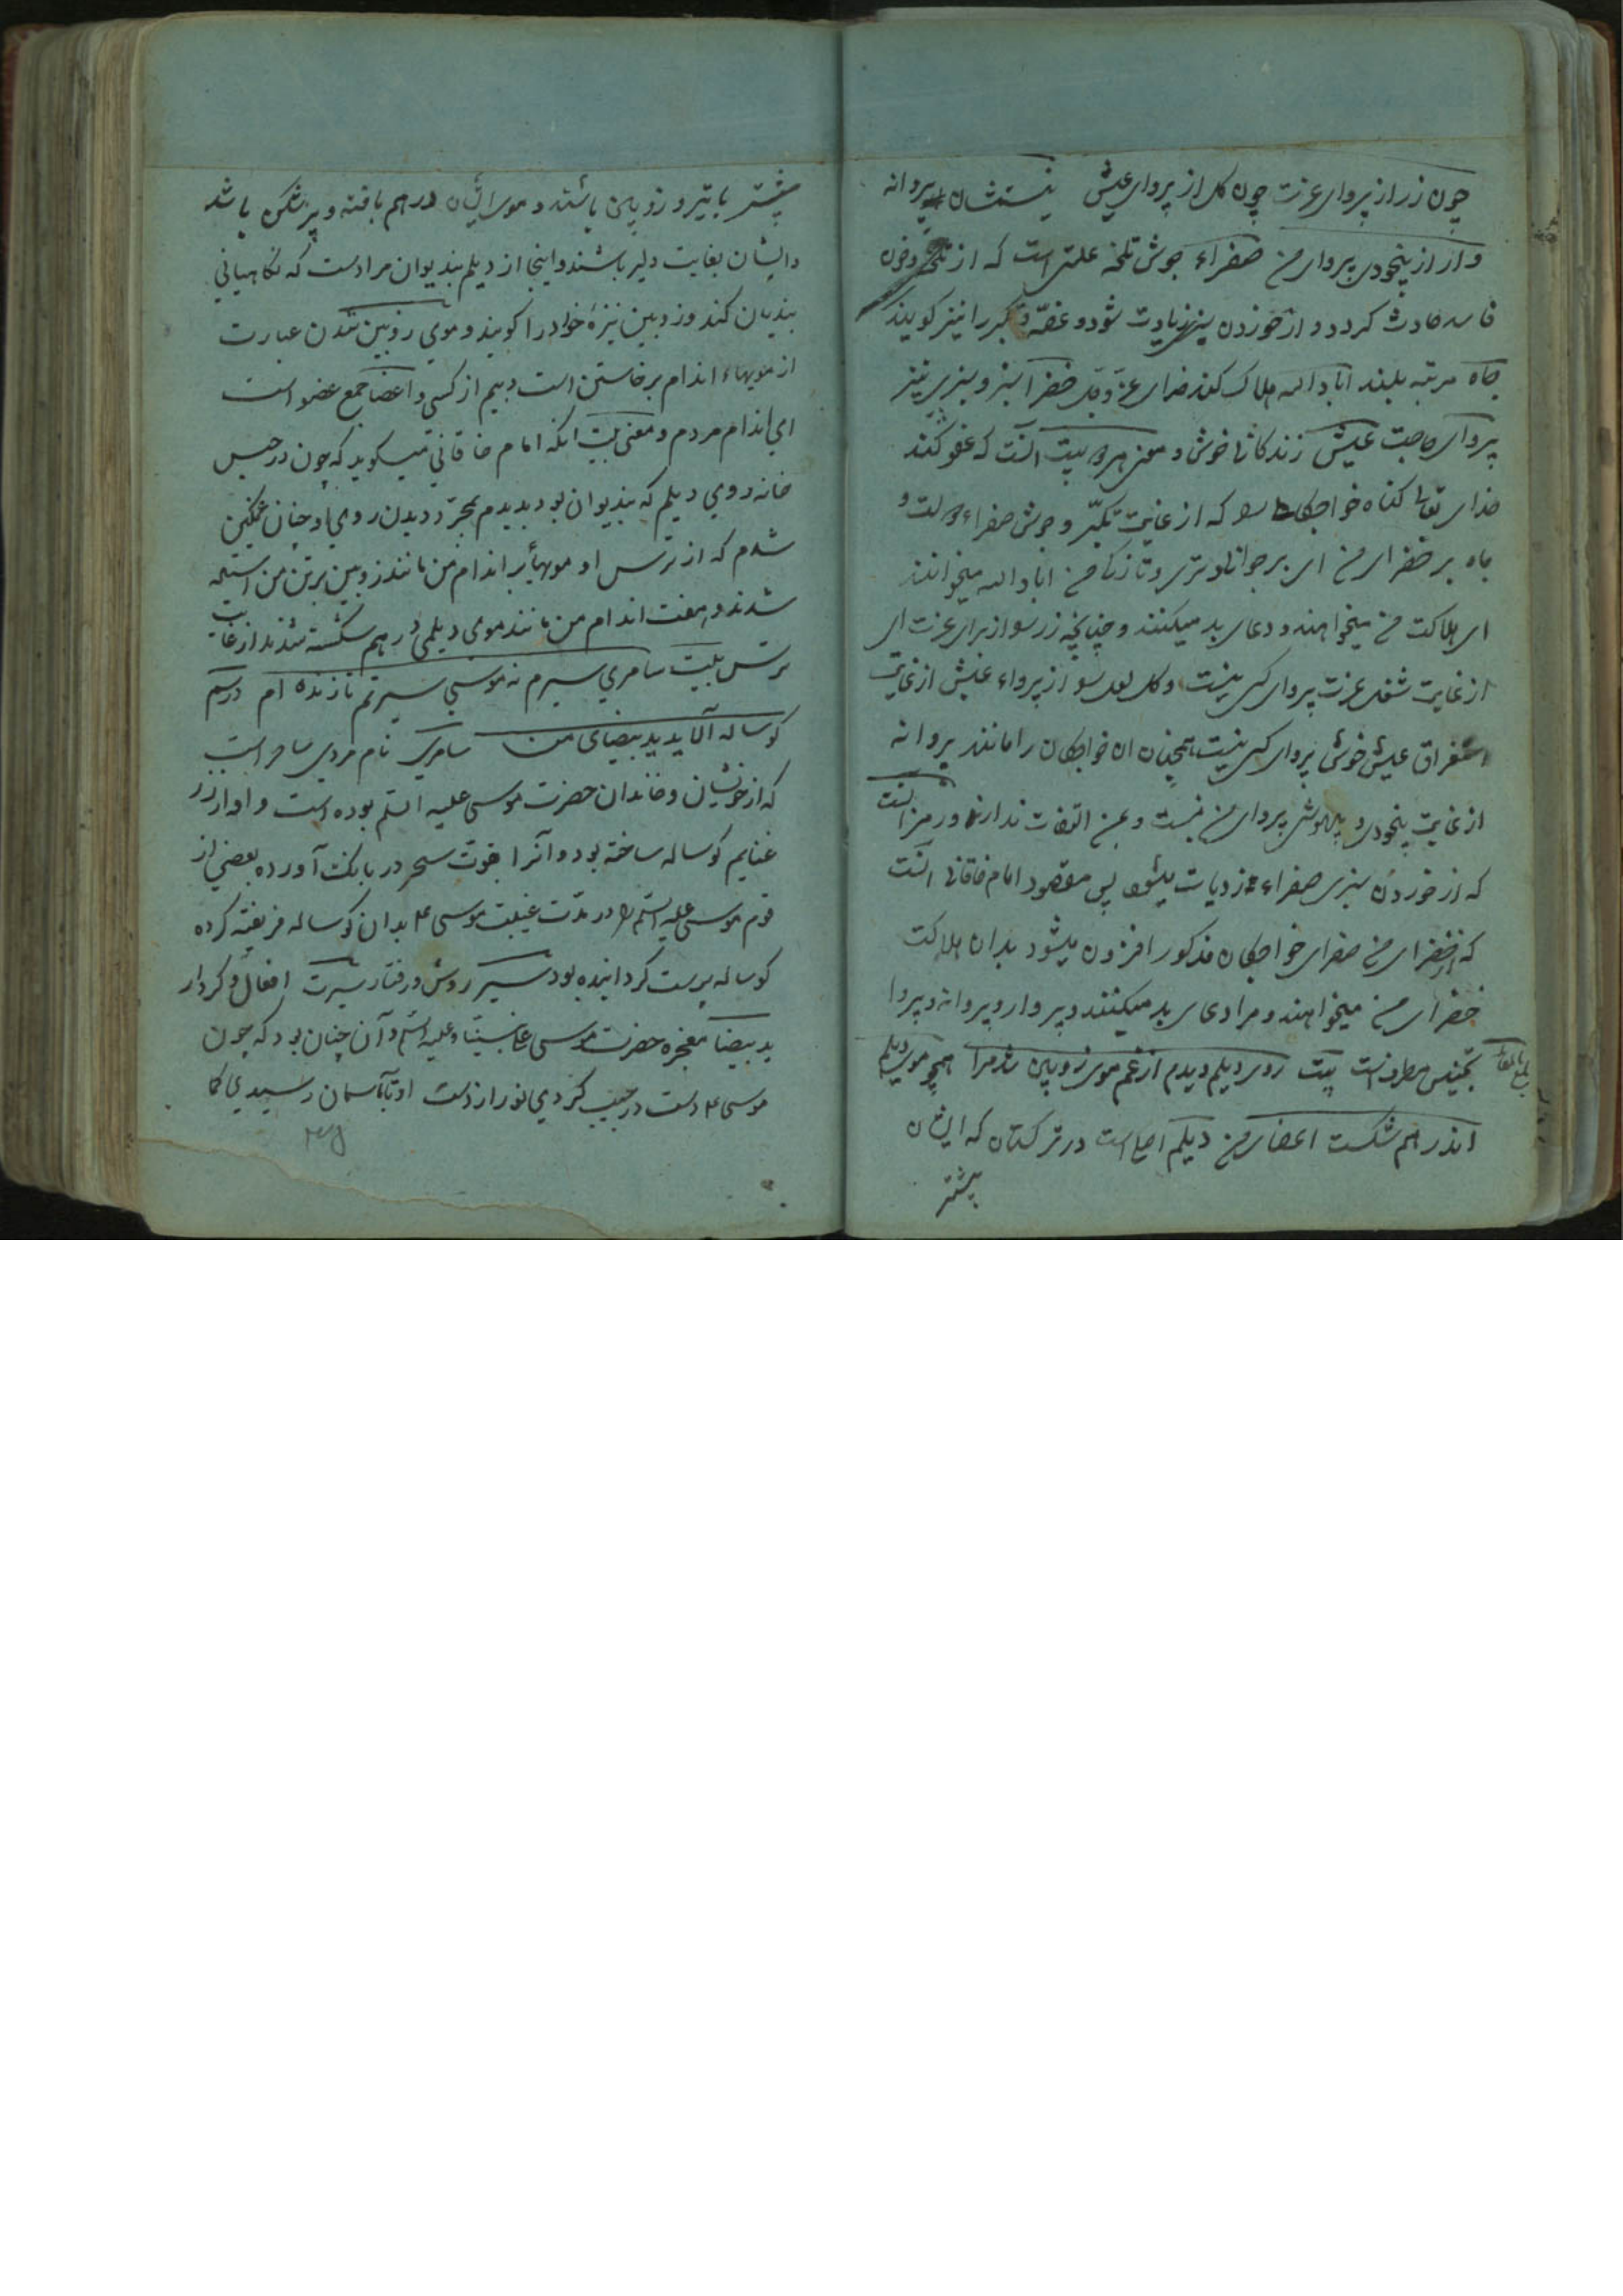 چون زر از پروای عزت چون کل از پروای عیش نیستشان پروانه
وار از بیخودی پروای من صفراء جوش تلخه علتی است که از تلخی و خون
فاسد حادث کردد و از خوردن سبزی زیادت شود و غصّه و کبر را نیز کویند
جاه مرتبه بلند اباد الله هلاک کند خدای عزّ و جل خضرا سبز و سبزی نیز
پروای حاجت عیش زندکانی خوش و معنی هر دو بیت آنست که عفو کند
خدای تعالی کناه خواجکان که از غایت تکبّر و جوش صفراء دولت و
جاه بر خضرای من ای بر جوانی و تری و تازکی من اباد الله میخوانند
ای هلاکت من میخواهند و دعای بد میکنند و چنانچه زر از برای عزت ای
از غایت شغل عزت پروای کسی نیست و کل از پرواء عیش از غایت
استغراق عیش خوشی پروای کسی نیست همچنان ان خواجکان را مانند پروانه
از غایت بیخودی و بیهوشی پروای من نیست و بمن التفات ندارند و رمز آنست
که از خوردن سبزی صفراء زیادت میشود پس مقصود امام خاقانی آنست
که از خضرای من صفرای خواجکان مذکور افزون میشود بدان هلاکت
خضرای من میخواهند و مرا دعای بد میکنند و پروار و پروانه و پروا
تجنیس مطرف است بیت روی دیلم دیدم از غم موی زوبین شد مرا همچو موی دیلم
اندر هم شکست اعضای من دیلم است در ترکستان که ایشان
بیشتر
بیشتر با تیر و زوبین باشند و موی ایشان در هم بافته و پر شکن باشد
و ایشان بغایت دلیر باشند و اینجا از دیلم بندیوان مرادست که نکاهبانی
بندیان کند و زوبین نیزهٔ خوادرا کویند و موی زوبین شدن عبارت
از مویهاء اندام برخاستن است دیدیم از کسی و اعضا جمع عضو است
ای اندام مردم و معنی بیت آنکه امام خاقانی میکوید که چون در حبس
خانه روی دیلم که بندیوان بود بدیدم بمجرّد دیدن روی او چنان غمکین
شدم که از ترس او مویها بر اندام من مانند زوبین بر تن من استاده
شدند و هفت اندام من مانند موی دیلمی در هم شکسته شدند از غایت
ترس بیت سامری سیرم نه موسی سیرتم تا زنده ام در سم
کوساله آلاید ید بیضای من سامری نام مردی ساحر است
که از خویشان و خاندان حضرت موسی علیه السلم بوده است و او از زر
غنایم کوساله ساخته بود و آنرا بقوت سحر در بانک آورده بعضی از
قوم موسی علیه السلم را در مدّت غیبت موسی ع بدان کوساله فریفته کرده
کوساله پرست کردانیده بود سیر روش و رفتار سیرت افعال و کردار
ید بیضا معجزه حضرت موسی علی نبینا و علیه السلم و آن چنان بود که چون
موسی ع دست در جیب کردی نور از دست او تا آسمان رسیدی کما